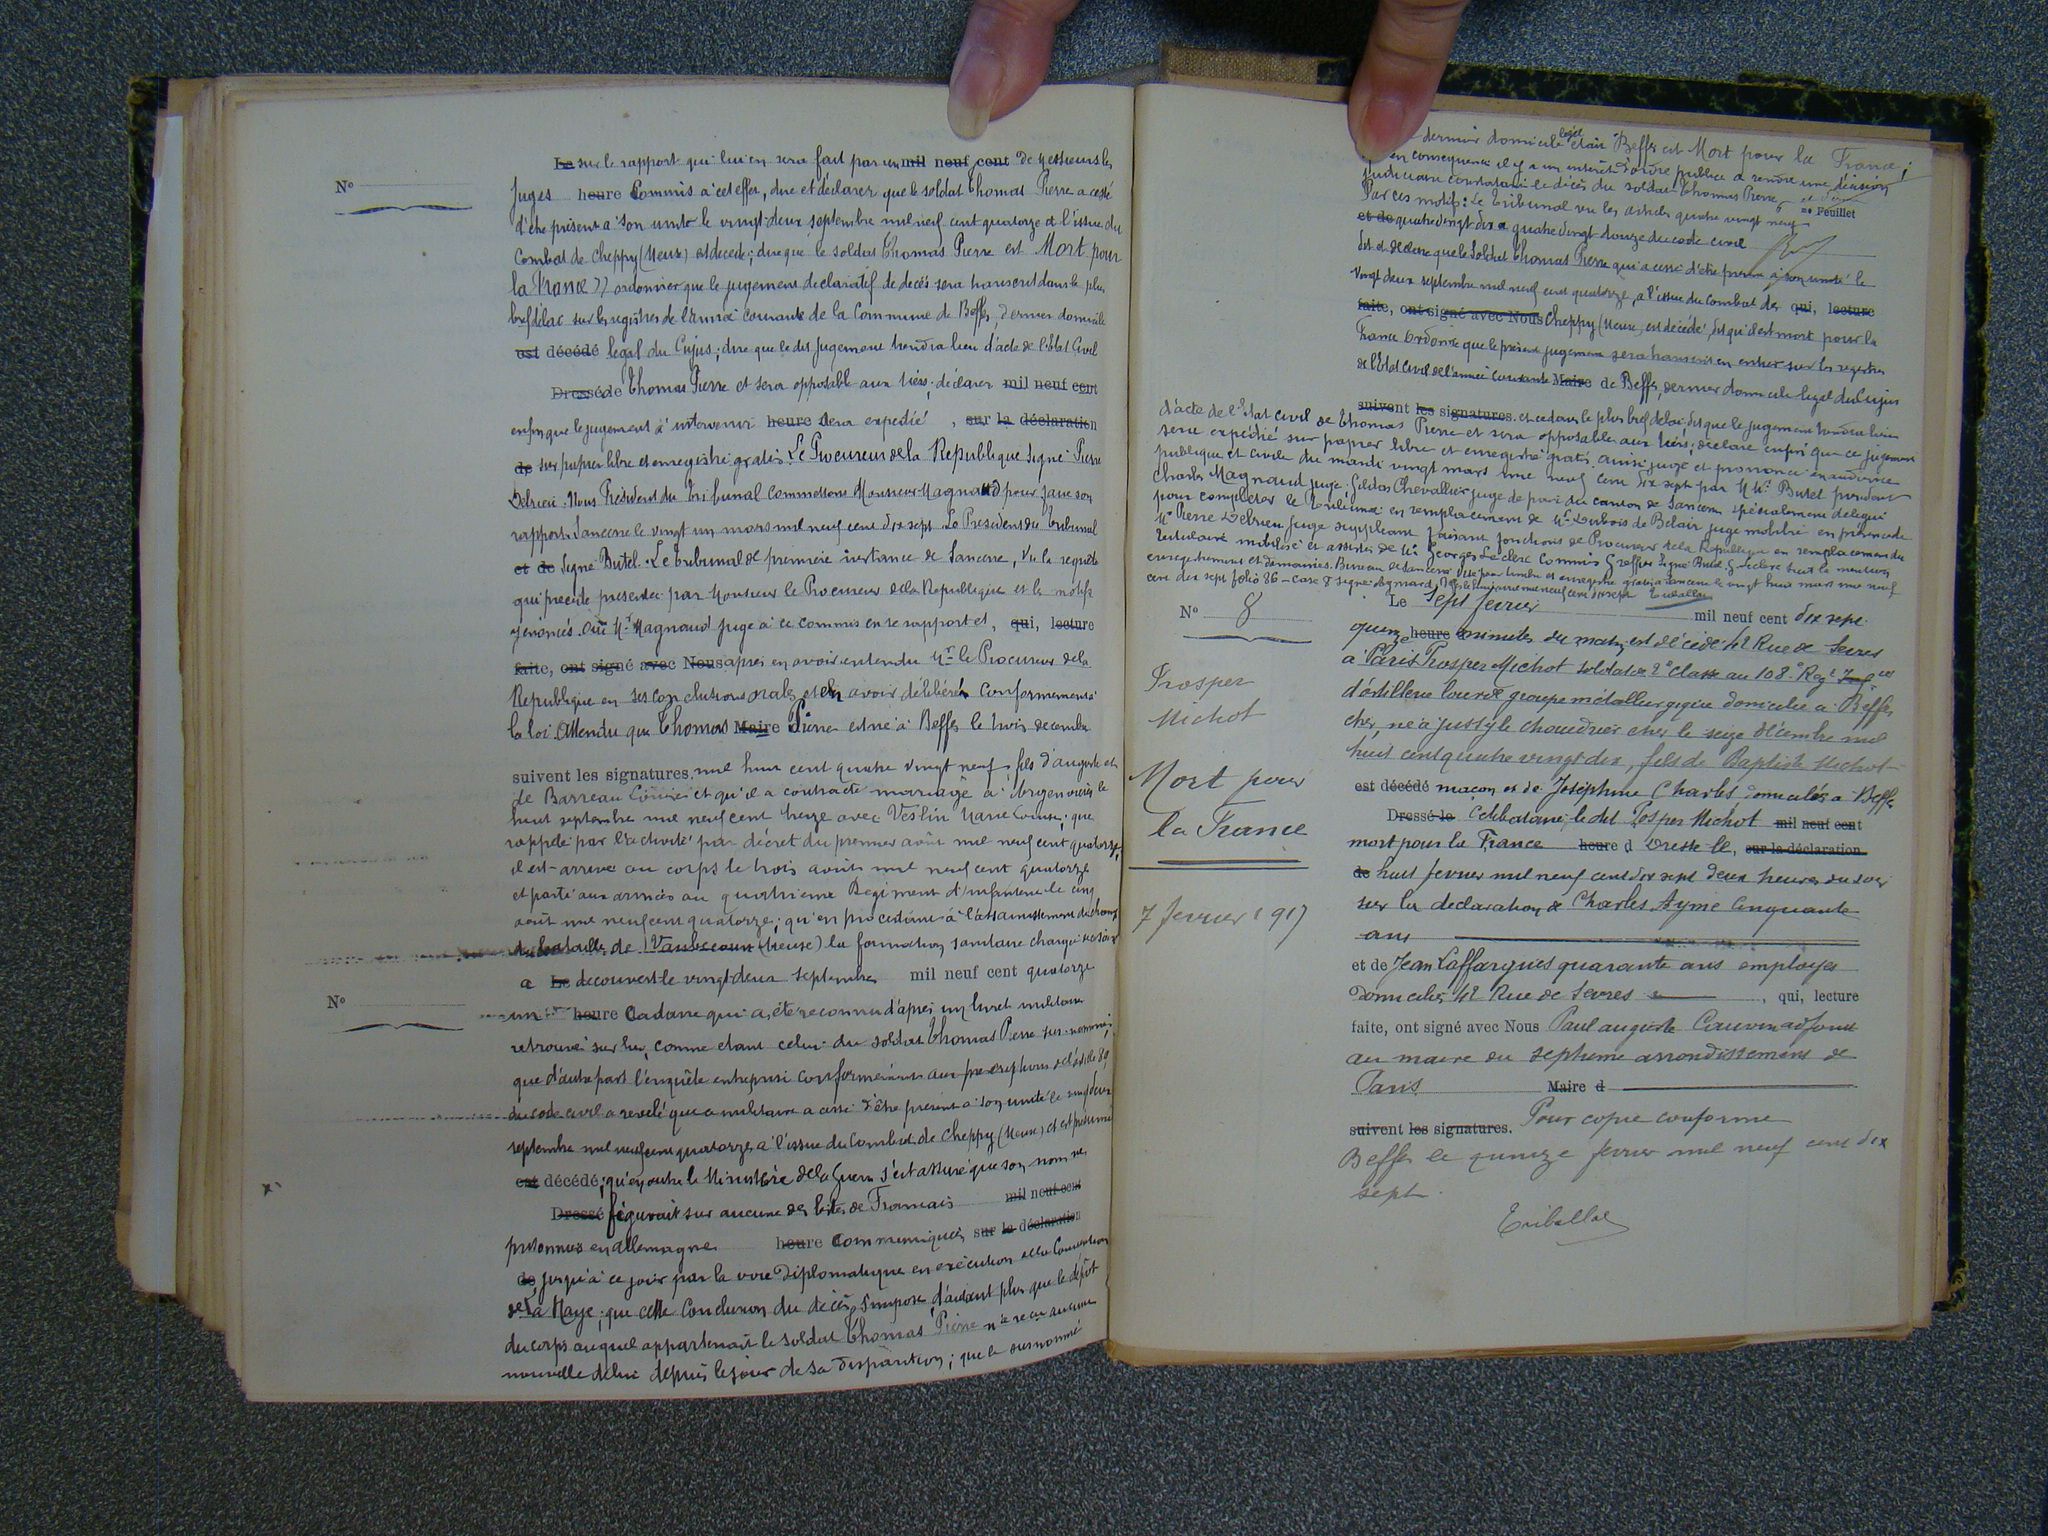 Le sur le rapport qui lui en sera fait par un mil neuf cent de Messieurs les
N°
Juges heure Commis à cet effet, dire et déclarer que le soldat Thomas Pierre a cessé
d'être présent à son unité le vingt-deux septembre mil neuf cent quatorze à l'issue du
Combat de Cheppy (Meuse) est décédé; dire que le soldat Thomas Pierre est Mort pour
la France ordonner que le jugement déclaratif de décès sera transcrit dans le plus
bref délai sur les registres de l'année courante de la Commune de Beffes, dernier domicile
est décédé legal du Cujus; dire que le dit Jugement tiendra lieu d'acte de l'état Civil
Dressé de Thomas Pierre et sera opposable aux tiers; déclarer mil neuf cent
enfin que le jugement à intervenir heure d sera expédié , sur la déclaration
de sur papier libre et enregistré gratis. Le Procureur de la République Signé Pierre
Debrieu. Nous Président du Tribunal commettons Monsieur Magnaud pour faire son
rapport. Sancerre le vingt un mars mil neuf cent dix sept. Le Président du Tribunal
et de Signé Butel. Le tribunal de première instance de Sancerre, Vu la requête
qui précède présentée par Monsieur le Procureur de la République et les motifs
y énoncés. Oui Mr Magnaud juge à ce commis en se rapport et, qui, lecture
faite, ont signé avec Nous après en avoir entendu Mr le Procureur de la
République en ses conclusions orales et en avoir délibéré Conformement à
la loi. Attendu que Thomas Maire Pierre est né à Beffes le trois decembre
suivent les signatures. mil huit cent quatre vingt neuf, fils d'auguste et
de Barreau Louise et qu'il a contracté mariage à Argenvières le
huit septembre mil neuf cent treize avec Veslin Marie Louise; que
rappelé par l'activité par décret du premier août mil neuf cent quatorze,
il est arrivé au corps le trois août mil neuf cent quatorze
et parti aux armées au quatrième Regiment d'infanterie le cinq
août mil neuf cent quatorze; qu'en procédant à l'assainissement du champ
de bataille de Vaubecourt (Meuse) la formation sanitaire chargée
a Le decouvert le vingt-deux septembre mil neuf cent quatorze
N°
un heure Cadavre qui a été reconnu d'après un livret militaire
retrouvé sur lui, comme étant celui du soldat Thomas Pierre sus-nommé;
que d'autre part l'enquête entreprise conformément aux prescriptions de l'article 89
du code civil a revelé que ce militaire a cessé d'être présent à son unité le vingt deux
septembre mil neuf cent quatorze à l'issue du Combat de Cheppy (Meuse) et est présumé
est décédé; qu'en outre le Ministère de la Guerre s'est assuré que son nom ne
Dressé figurait sur aucune des listes de Francais mil neuf cent
prisonniers en Allemagne heure d communiquées sur la déclaration
de jusqu'à ce jour par la voie Diplomatique en exécution de la Convention
de La Haye; que cette Conclusion du décès s'impose d'autant plus que le dépôt
du corps auquel appartenait le soldat Thomas Pierre n'a reçu aucune
nouvelle de lui depuis le jour de sa disparition; que le susnommé
dernier domicile legal était Beffes est Mort pour la France;
en consequence il y a un intérêt d'ordre publique à rendre une décision
judiciaire constatant le décès du soldat Thomas Pierre
Par ces motifs: Le Tribunal vu les articles quatre vingt neuf
Feuillet
et de quatre vingt dix à quatre vingt douze du code civil
dit et déclare que le Soldat Thomas Pierre qui a cessé d'être présent à son unité le
vingt deux septembre mil neuf cent quatorze, à l'issue du Combat de qui, lecture
faite, ont signé avec Nous Cheppy (Meuse) est décédé, dit qu'il est mort pour la
France Ordonne que le présent jugement sera transcrit en entier sur les registres
de l'Etat Civil de l'année Courante Maire de Beffes, dernier domicile legal du Cujus
suivent les signatures. et ce dans le plus bref delai dit que le jugement tiendra lieu
d'acte de l'Etat Civil de Thomas Pierre et sera opposable aux tiers; déclare enfin que ce jugement
sera expédié sur papier libre et enregistré gratis. Ainsi jugé et prononcé en audience
publique et civile du mardi vingt mars mil neuf cent dix sept par M Mrs Butel président
Charles Magnaud juge, Gildas Chevallier juge de paix du canton de Sancerre spécialement délégué
pour compléter le Tribunal en remplacement de Mr Dubois de Belair juge mobilisé en présence de
Mr Pierre Debrieu juge suppléant faisant fonctions de Procureur de la République en remplacement du
titulaire mobilisé et assistés de Mr Georges Leclerc Commis Greffier Signé Butel G Leclerc Suit la mention
enregistrement et domaines. Bureau de Sancerre Visé pour timbre et enregistré gratis à Sancerre le vingt huit mars mil neuf
cent dix sept folio 86 - case 8 signé Aymard mil neuf cent dix sept Triballat
N° 8
Prosper
Michot
Mort pour
la France
7 fevrier 1917
Le Sept fevrier mil neuf cent dix sept
quinze heure d minutes du matin est décédé 42 Rue de Sevres
à Paris Prosper Michot soldat de 2e classe au 108e Regt
d'artillerie lourde groupe métallurgique domicilié à Beffes
cher, né à Jussy le Chaudrier cher le seize décembre mil
huit cent quatre vingt dix, fils de Baptiste Michot
est décédé maçon et de Joséphine Charles domiciliés à Beffes
Dressé le Célibataire, le dit Prosper Michot mil neuf cent
mort pour la France heure d Dressé le, sur la déclaration
de huit fevrier mil neuf cent dix sept deux heures du soir
sur la declaration de Charles Aymé Cinquante
ans
et de Jean Laffargues quarante ans employés
domiciliés 42 Rue de Sevres , qui, lecture
faite, ont signé avec Nous Paul auguste Cauvin adjoint
au maire du septieme arrondissement de
Paris Maire d
suivent les signatures. Pour copie conforme
Beffes le quinze fevrier mil neuf cent dix
sept.
Triballat